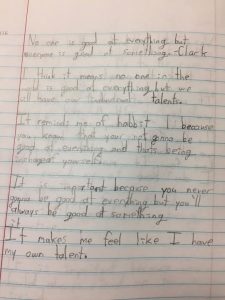 No one is good at everything but
everyone is good at something.-Clark
I think it means no one in the
world is good at everything but we
all have our individual talents.
It reminds me of habbit 1 because
you know that your not gonna be
good at everything and thats being
in charge of yourself.
It is important because you never
gonna be good at everything but you'll
always be good at something
it
It makes me feel like I have
my own talent.